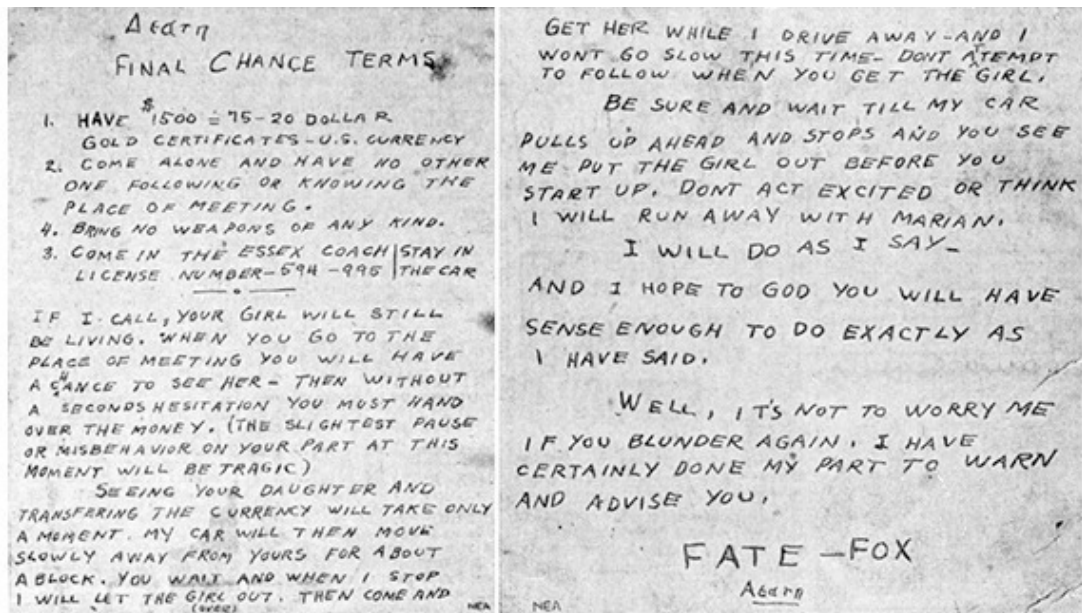 Δεατη
FINAL CHANCE TERMS
1. HAVE $1500 = 75-20 DOLLAR
GOLD CERTIFICATES - U.S. CURRENCY
2. COME ALONE AND HAVE NO OTHER
ONE FOLLOWING OR KNOWING THE
PLACE OF MEETING.
4. BRING NO WEAPONS OF ANY KIND.
3. COME IN THE ESSEX COACH | STAY IN
LICENSE NUMBER - 594 - 995 | THE CAR
IF I CALL, YOUR GIRL WILL STILL
BE LIVING. WHEN YOU GO TO THE
PLACE OF MEETING YOU WILL HAVE
A CHANCE TO SEE HER - THEN WITHOUT
A SECONDS HESITATION YOU MUST HAND
OVER THE MONEY. (THE SLIGHTEST PAUSE
OR MISBEHAVIOR ON YOUR PART AT THIS
MOMENT WILL BE TRAGIC)
SEEING YOUR DAUGHTER AND
TRANSFERING THE CURRENCY WILL TAKE ONLY
A MOMENT. MY CAR WILL THEN MOVE
SLOWLY AWAY FROM YOURS FOR ABOUT
A BLOCK. YOU WAIT AND WHEN I STOP
I WILL LET THE GIRL OUT. THEN COME AND
(OVER)
NEA
GET HER WHILE I DRIVE AWAY - AND I
WONT GO SLOW THIS TIME - DONT ATTEMPT
TO FOLLOW WHEN YOU GET THE GIRL.
BE SURE AND WAIT TILL MY CAR
PULLS UP AHEAD AND STOPS AND YOU SEE
ME PUT THE GIRL OUT BEFORE YOU
START UP. DONT ACT EXCITED OR THINK
I WILL RUN AWAY WITH MARIAN.
I WILL DO AS I SAY -
AND I HOPE TO GOD YOU WILL HAVE
SENSE ENOUGH TO DO EXACTLY AS
I HAVE SAID.
WELL, IT'S NOT TO WORRY ME
IF YOU BLUNDER AGAIN. I HAVE
CERTAINLY DONE MY PART TO WARN
AND ADVISE YOU.
FATE - FOX
Δεατη
NEA